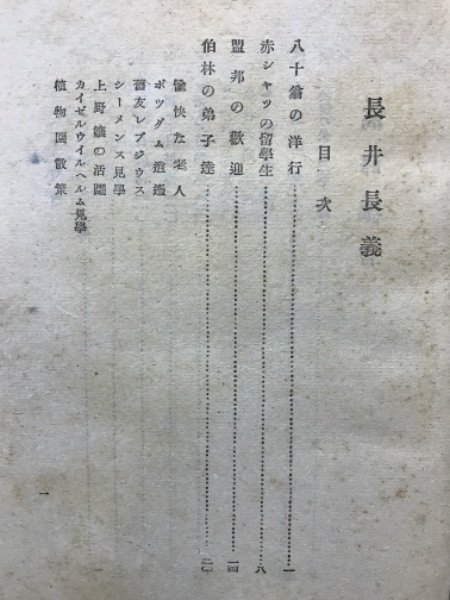 長井長義
目次
八十翁の洋行……一
赤シャツの留學生……八
盟邦の歡迎……一四
伯林の弟子達……二〇
愉快な老人
ポツダム逍遙
舊友レプジウス
シーメンス見學
上野孃の活躍
カイゼルウイルヘルム見學
植物園散策
一